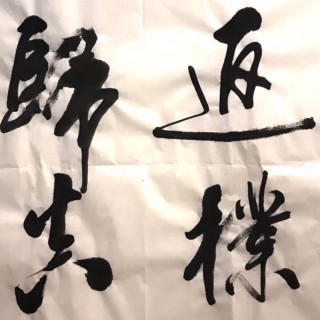 返樸
歸真